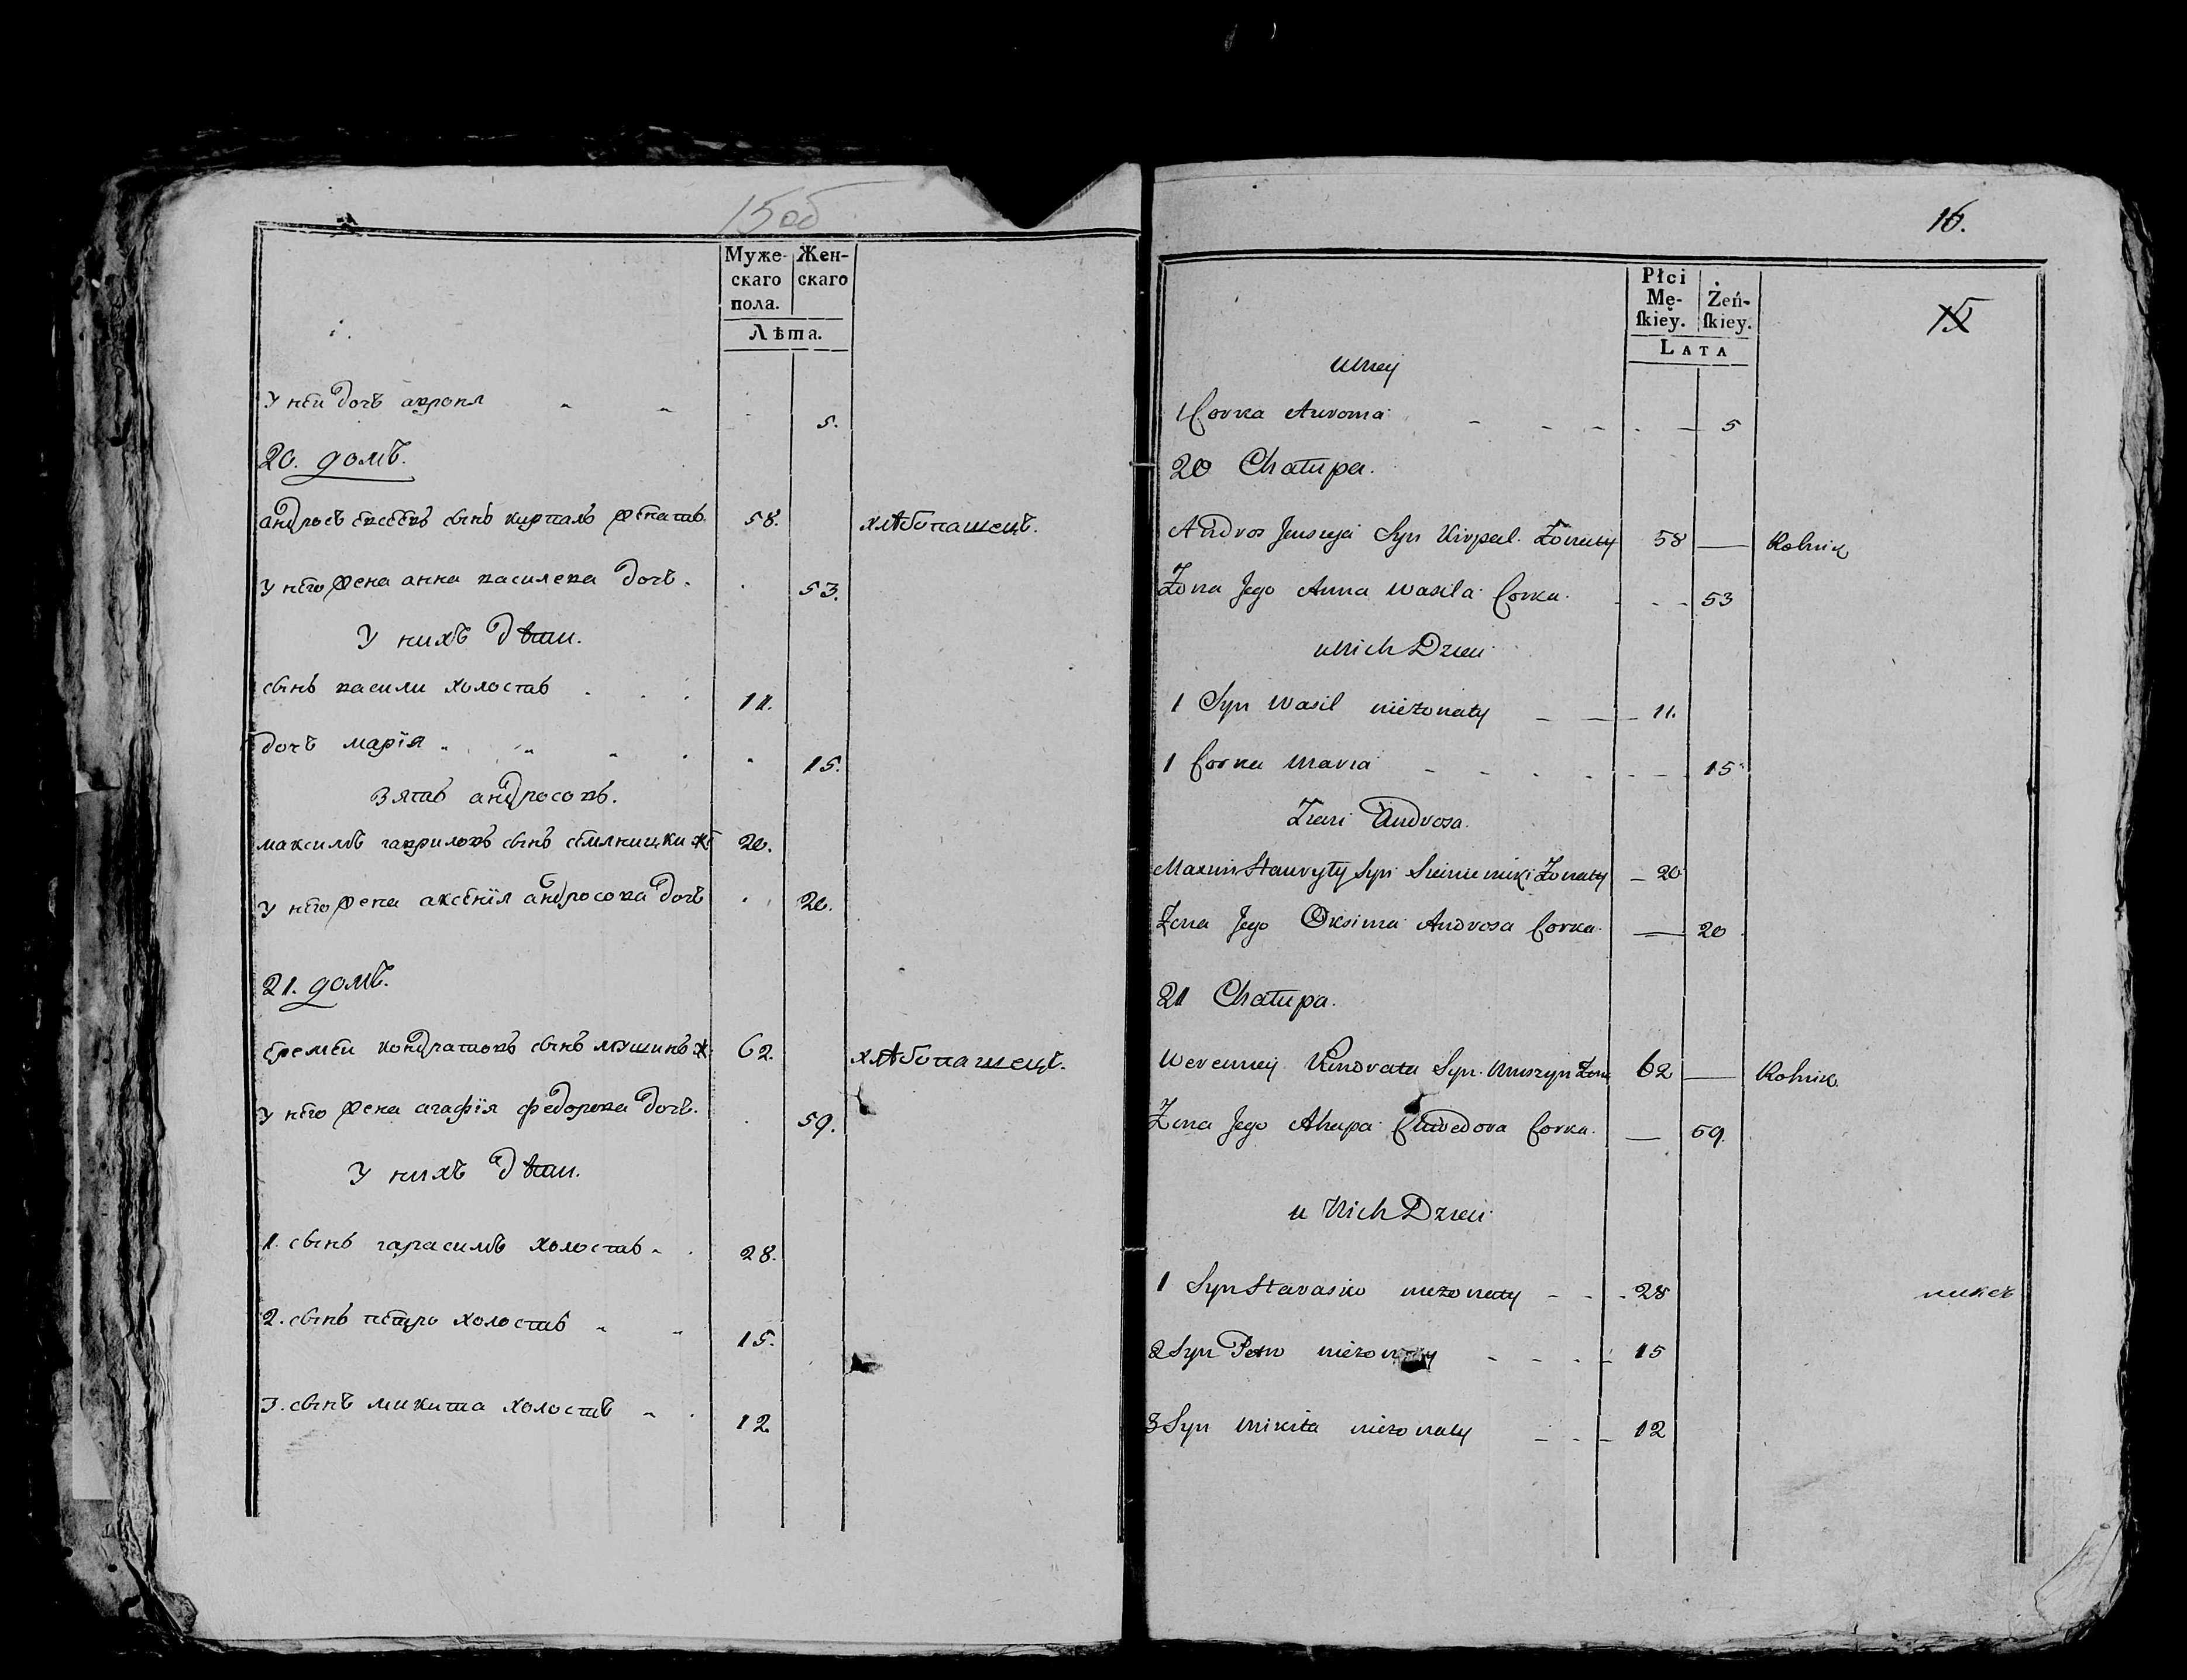 15 об
Муже-
скаго
пола.
Жен-
скаго
Лѣта.
У неи дочъ апроня 5.
20. домъ.
андросъ евсеевъ сынъ кирпалъ женатъ. 58. хлѣбопашецъ.
У него жена анна василева дочъ. 53.
У нихъ дѣти.
сынъ васили холостъ 11.
дочъ марїя 15.
Зять андросовъ.
максимъ гавриловъ сынъ семяницки ж 20.
У него жена аксенїя андросова дочъ 20.
21. домъ.
еремѣи кондратовъ сынъ мушинъ ж. 62. хлѣбопашецъ.
У него жена агафїя федорова дочъ. 59.
У нихъ дѣти.
1. сынъ гарасимъ холостъ 28.
2. сынъ петро холостъ 15.
3. сынъ микита холостъ 12.
16.
15
Płci
Mę-
ſkieỳ.
Żeń-
ſkiey.
LATA
u niej
1 Corka 5
20 Chatupa.
Andros Syn Kirpal. Żonaty 58 Rolnik
Żona Jego Anna Wasila Corka. 53
u Nich Dzieci
1 Syn Wasil nieżonaty 11.
1 Corka Maria 15
Zieni Androsa.
Maxim Syn Żonaty 20
Żona Jego Oksinia Androsa Corka. 20
21 Chatupa.
Weremiej Kondrata Syn Muszyn Żona 62 Rolnik
Żona Jego Ahapa Corka. 59.
u Nich Dzieci
1 Syn Harasim nieżonaty 28
2 Syn Petro nieżonaty 15
3 Syn Mikita nieżonaty 12